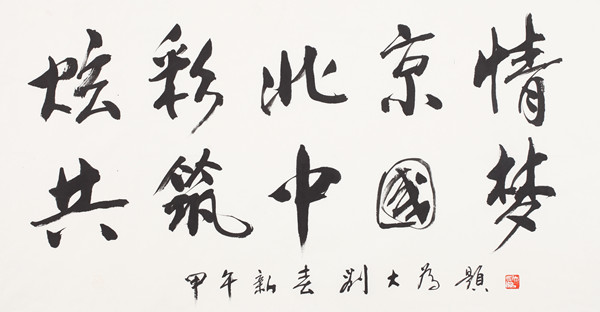 炫彩北京情
共筑中国梦
甲午新春 刘大为题